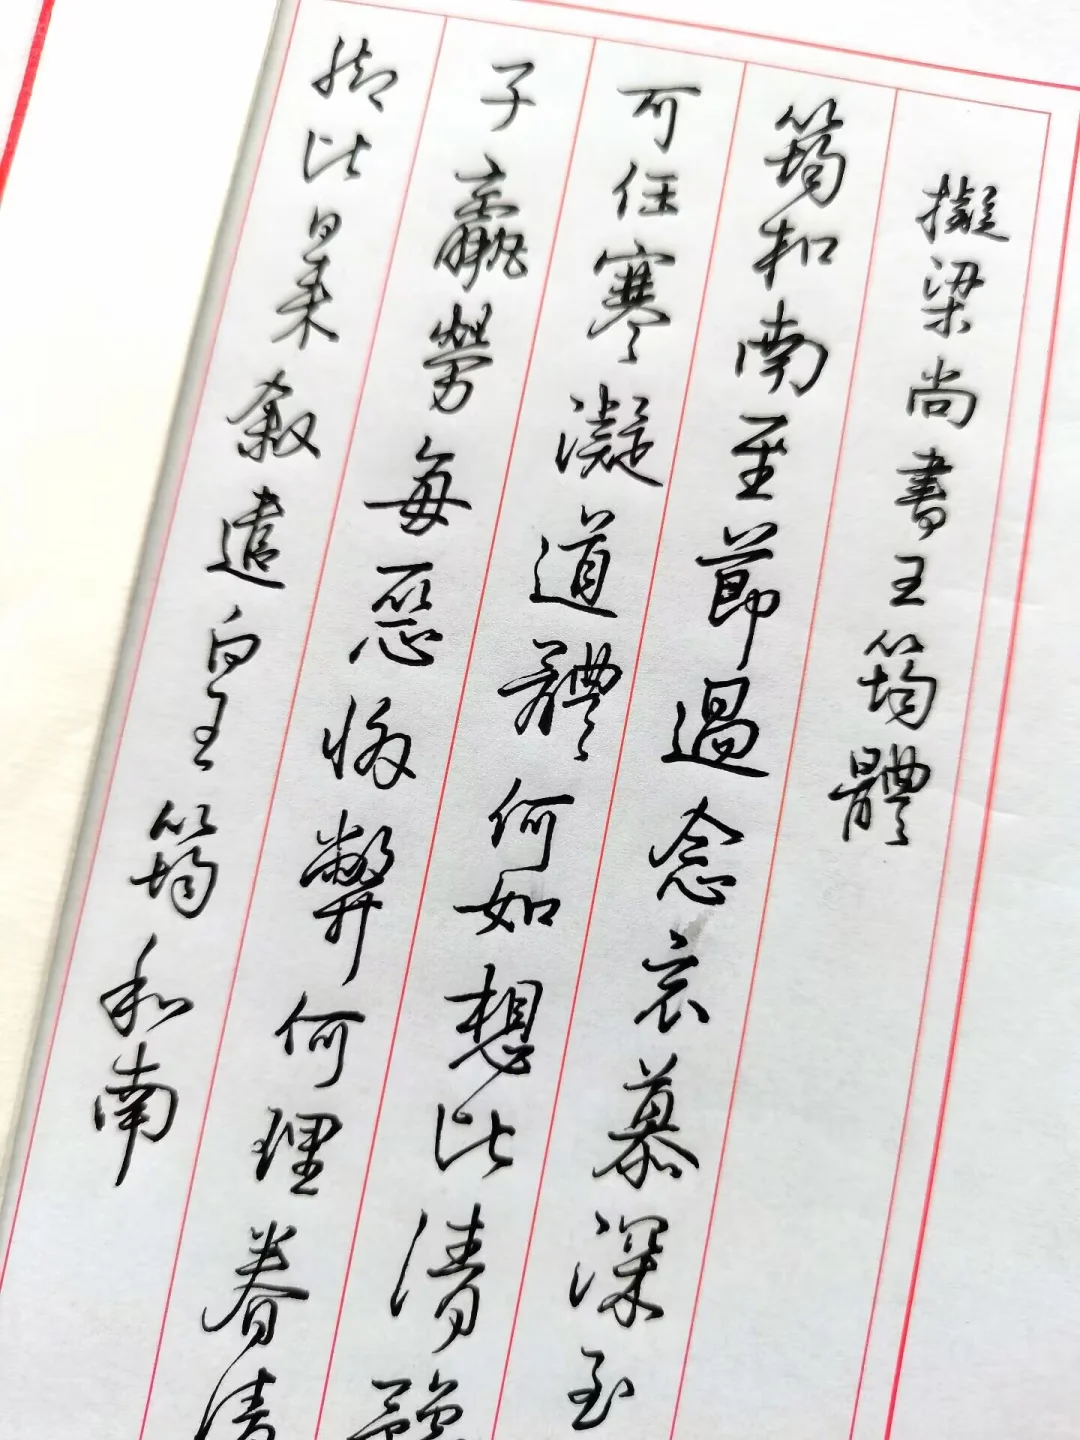 擬梁尚書王筠體
筠和南至節過念哀慕深至
可任寒凝道體何如想比清豫
子羸勞每惡惙弊何理眷清
腳比日来敘遣白王筠和南